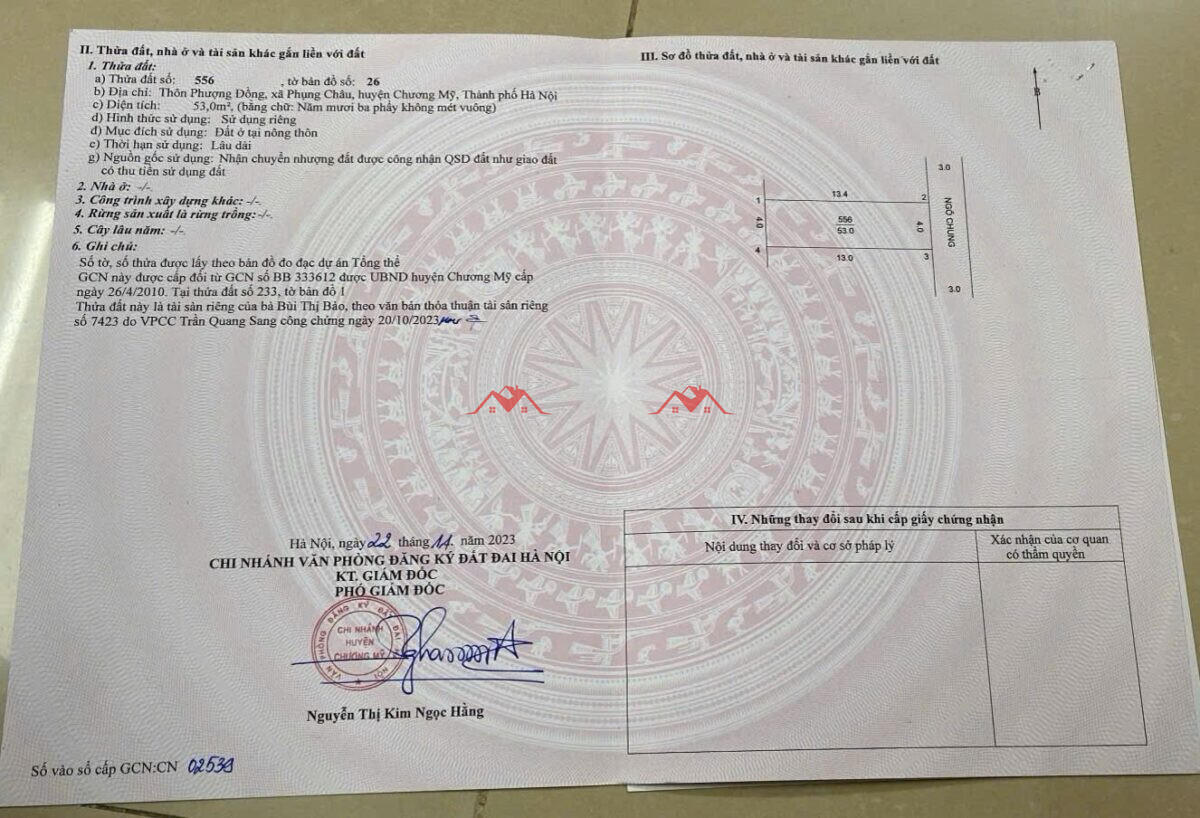 II. Thửa đất, nhà ở và tài sản khác gắn liền với đất
1. Thửa đất:
a) Thửa đất số: 556 , tờ bản đồ số: 26
b) Địa chỉ: Thôn Phượng Đồng, xã Phụng Châu, huyện Chương Mỹ, Thành phố Hà Nội
c) Diện tích: 53,0m², (bằng chữ: Năm mươi ba phẩy không mét vuông)
d) Hình thức sử dụng: Sử dụng riêng
đ) Mục đích sử dụng: Đất ở tại nông thôn
e) Thời hạn sử dụng: Lâu dài
g) Nguồn gốc sử dụng: Nhận chuyển nhượng đất được công nhận QSD đất như giao đất
có thu tiền sử dụng đất
2. Nhà ở: -/-.
3. Công trình xây dựng khác: -/-.
4. Rừng sản xuất là rừng trồng: -/-.
5. Cây lâu năm: -/-.
6. Ghi chú:
Số tờ, số thửa được lấy theo bản đồ đo đạc dự án Tổng thể
GCN này được cấp đổi từ GCN số BB 333612 được UBND huyện Chương Mỹ cấp
ngày 26/4/2010. Tại thửa đất số 233, tờ bản đồ 1
Thửa đất này là tài sản riêng của bà Bùi Thị Bảo, theo văn bản thỏa thuận tài sản riêng
số 7423 do VPCC Trần Quang Sang công chứng ngày 20/10/2023
Hà Nội, ngày 22 tháng 11 năm 2023
CHI NHÁNH VĂN PHÒNG ĐĂNG KÝ ĐẤT ĐAI HÀ NỘI
KT. GIÁM ĐỐC
PHÓ GIÁM ĐỐC
VĂN PHÒNG ĐĂNG KÝ ĐẤT ĐAI HÀ NỘI
CHI NHÁNH
HUYỆN
CHƯƠNG MỸ
Nguyễn Thị Kim Ngọc Hằng
Số vào sổ cấp GCN:CN 02539
III. Sơ đồ thửa đất, nhà ở và tài sản khác gắn liền với đất
B
3.0
1 13.4 2
4.0 556 4.0 NGÕ CHUNG
53.0
4 13.0 3
3.0
IV. Những thay đổi sau khi cấp giấy chứng nhận
Nội dung thay đổi và cơ sở pháp lý
Xác nhận của cơ quan
có thẩm quyền